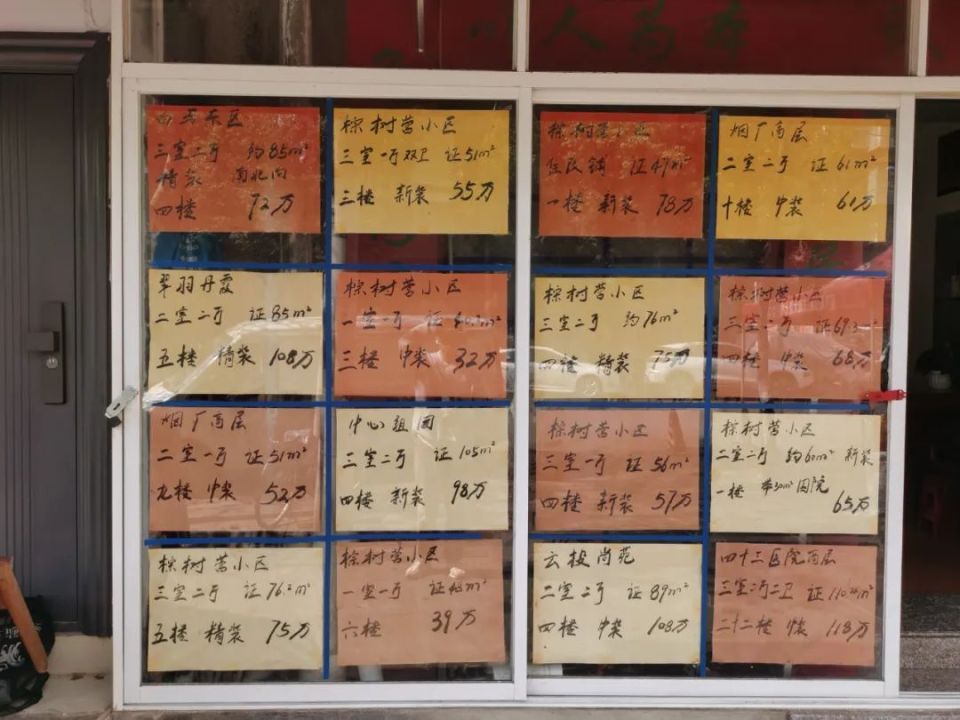 人 为
东区
三室二厅 约85m²
精装 南北向
四楼 72万
棕树营小区
三室一厅双卫 证51m²
三楼 新装 55万
棕树营小区
住改铺 证47m²
一楼 新装 78万
烟厂高层
二室二厅 证61m²
十楼 中装 61万
翠羽丹霞
二室二厅 证85m²
五楼 精装 108万
棕树营小区
一室一厅 证
三楼 中装 32万
棕树营小区
三室二厅 约76m²
四楼 精装 75万
棕树营小区
三室二厅 证69.3m²
四楼 中装 68万
烟厂高层
二室一厅 证51m²
九楼 中装 52万
中心组团
三室二厅 证105m²
四楼 新装 98万
棕树营小区
三室一厅 证56m²
四楼 新装 57万
棕树营小区
二室二厅 约60m² 新装
一楼 带30m²围院
65万
棕树营小区
三室二厅 证76.2m²
五楼 精装 75万
棕树营小区
一室一厅 证42m²
六楼 39万
云投尚苑
二室二厅 证89m²
四楼 中装 108万
四十三医院高层
三室二厅二卫 证110
二十二楼 中装 118万